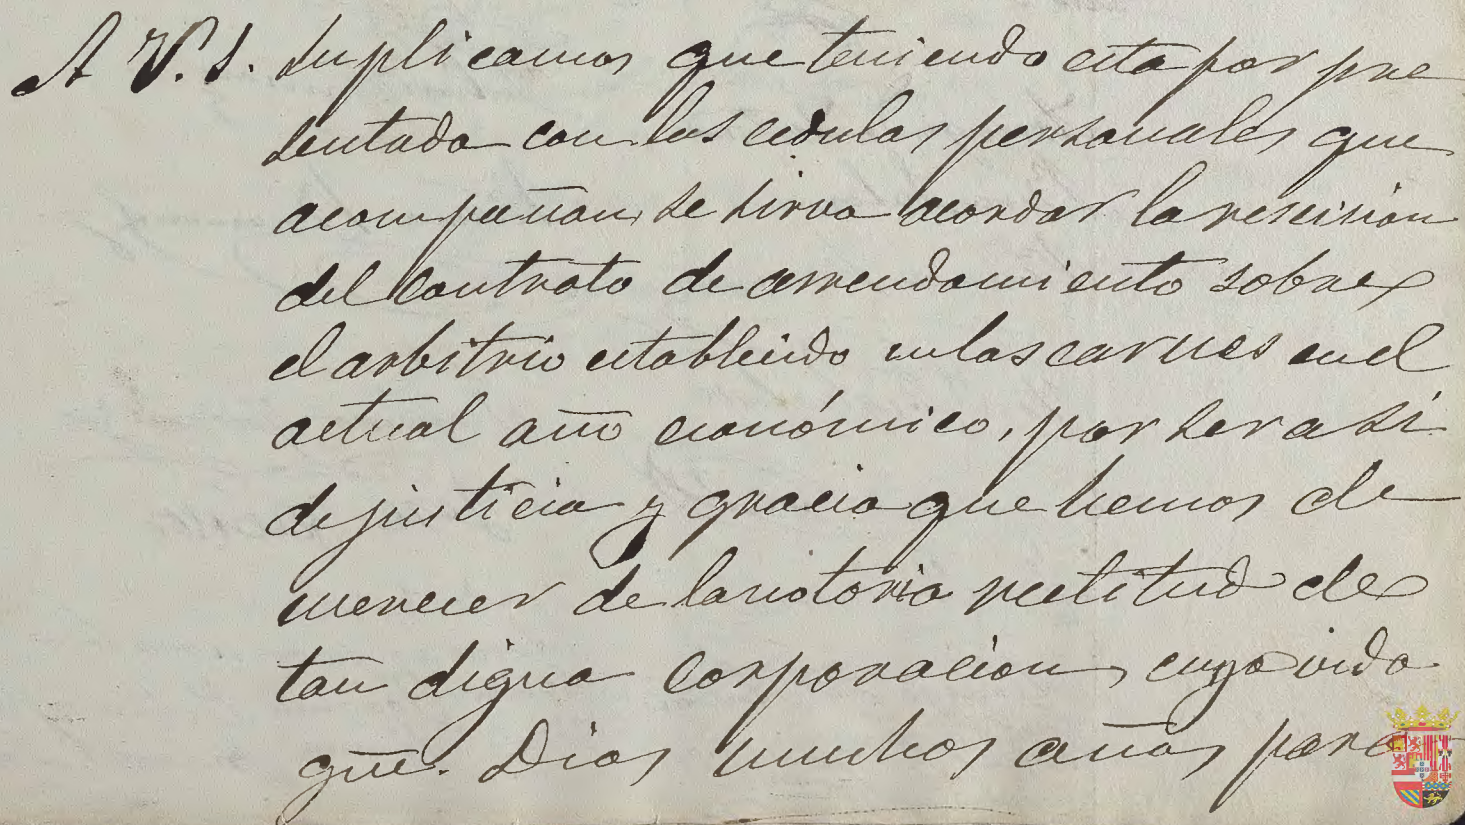 A V. S. Suplicamos que teniendo esta por pre
sentada con las cedulas personales que
acompañan, se sirva acordar la rescision
del contrato de arrendamiento sobre
el arbitrio establecido en las carnes en el
actual año económico, por ser asi
de justicia y gracia que hemos de
merecer de la notoria rectitud de
tan digna corporacion, cuya vida
gũe. Dios muchos años para